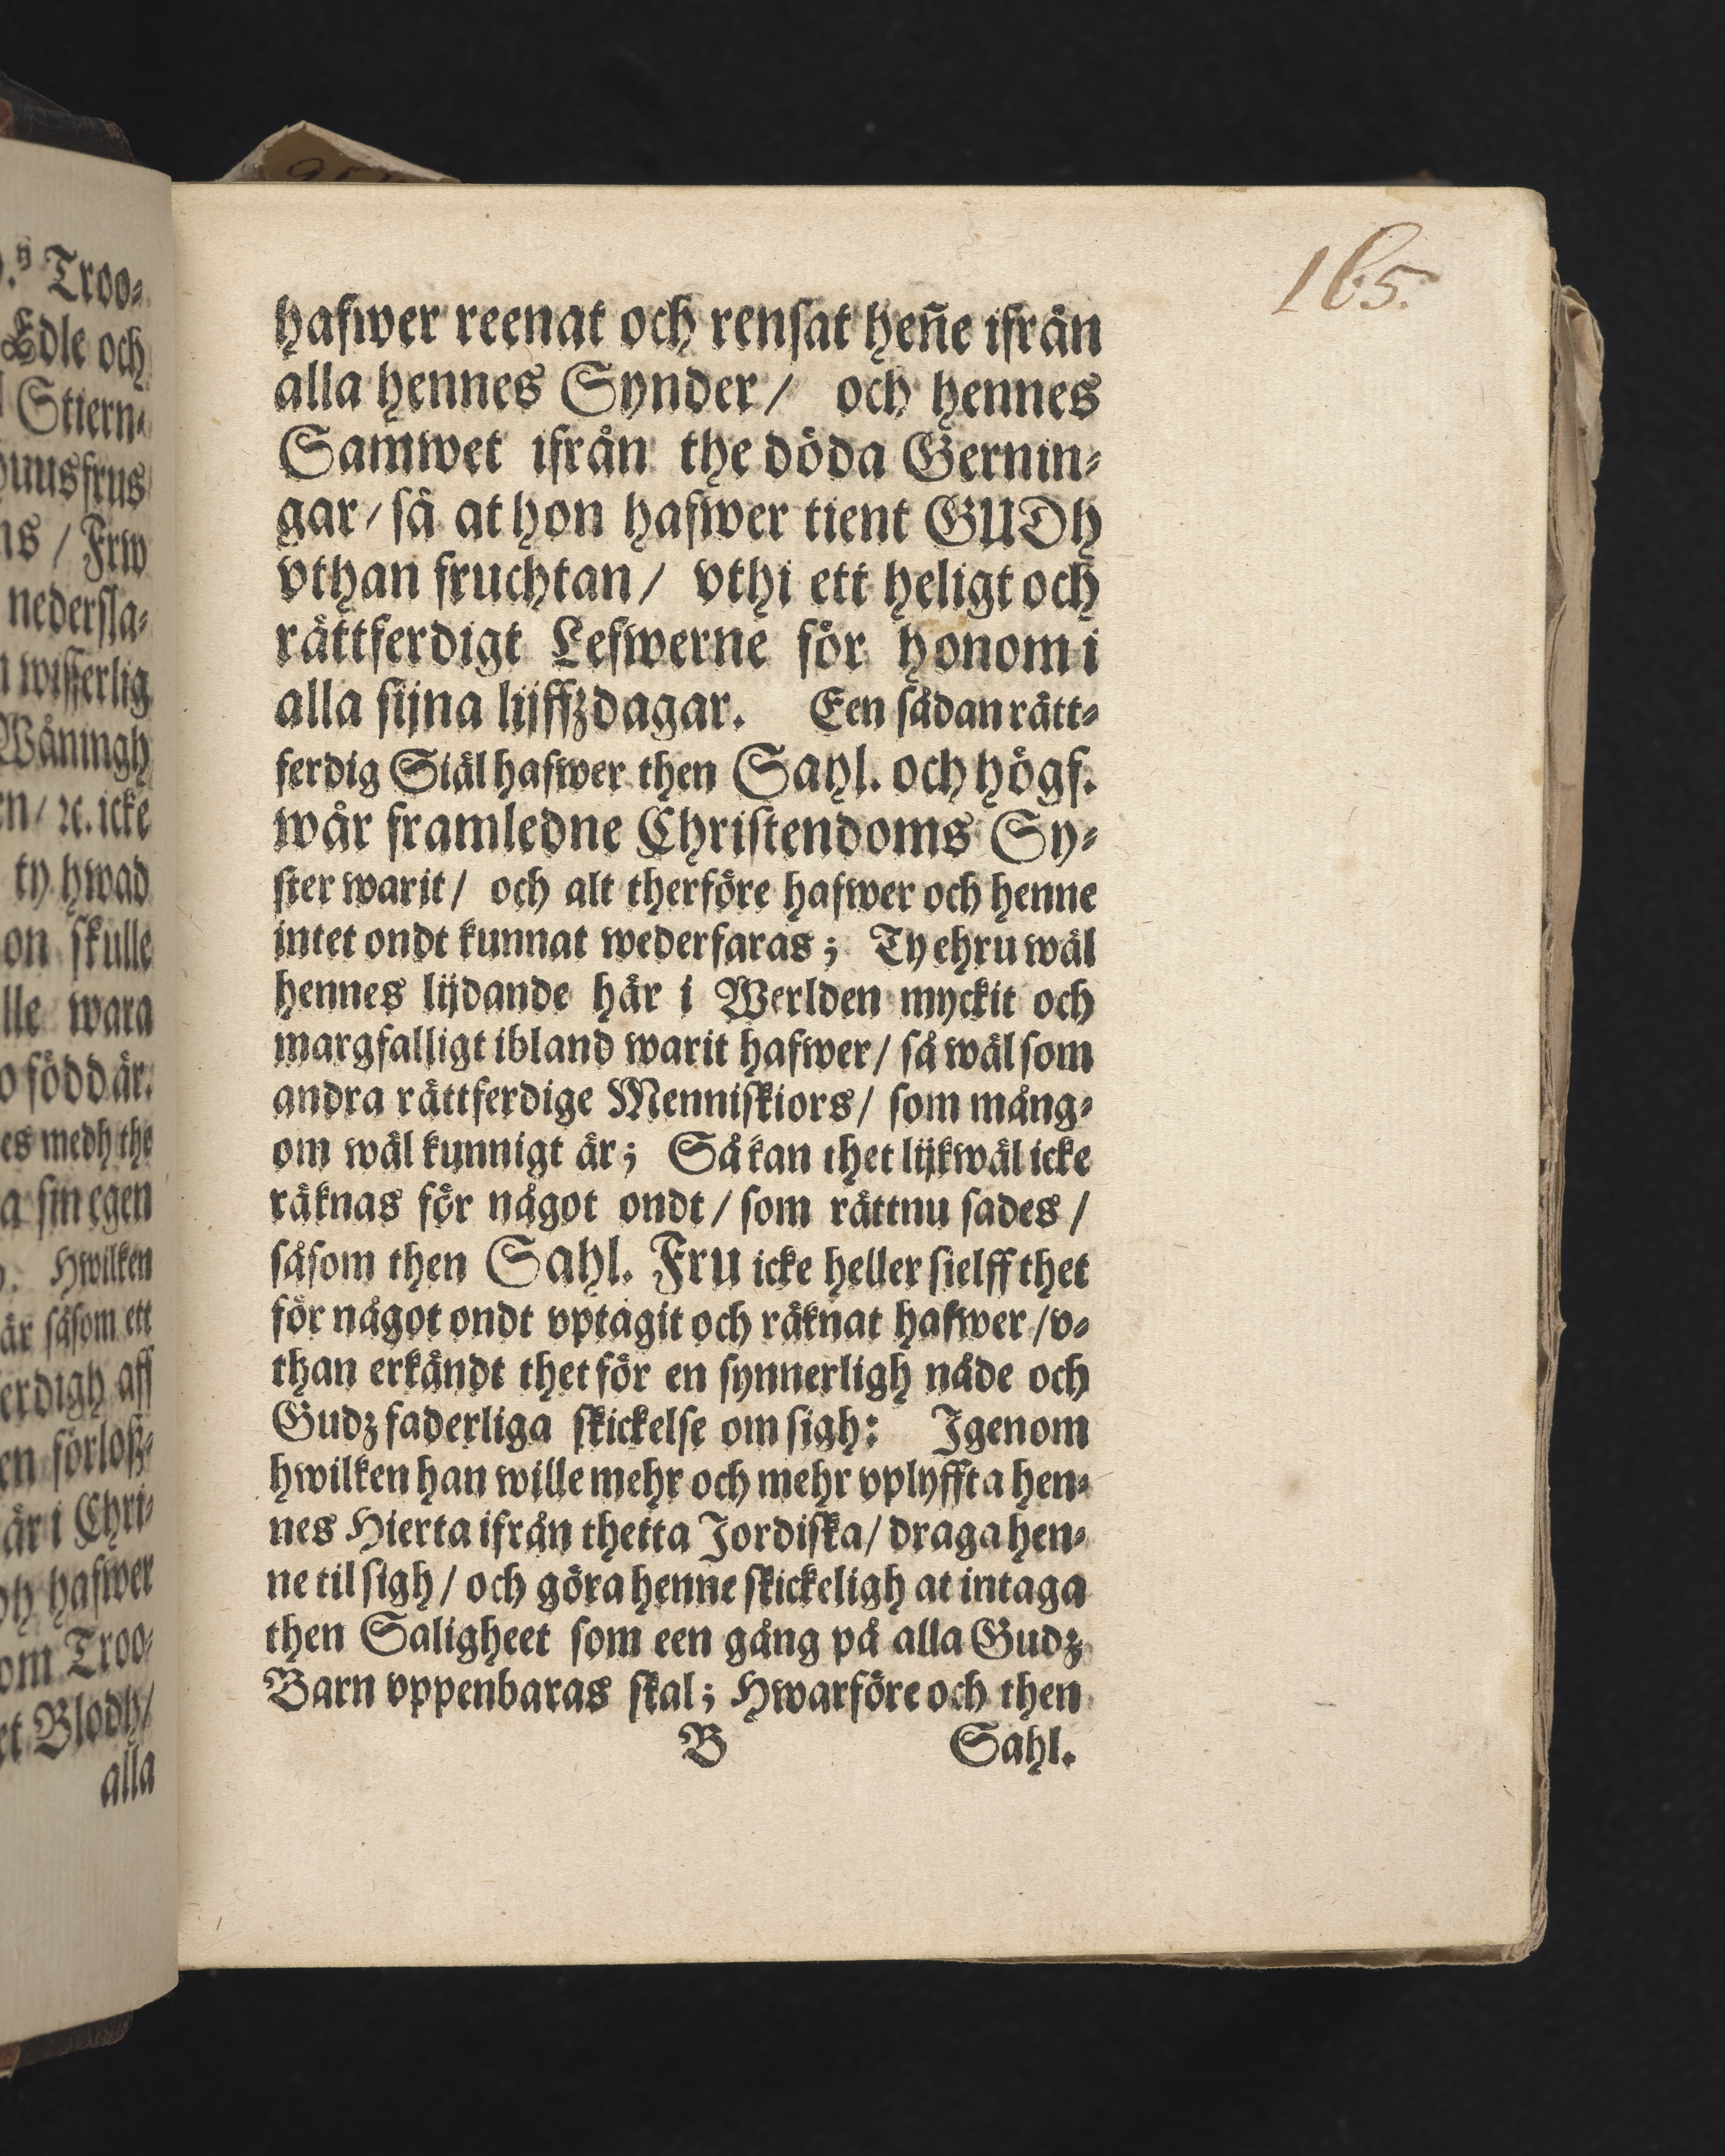 165.
.ͤ Troo⸗
Edle och
Stiern⸗
huusfrus
ns / Frw
nedersla⸗
wisserlig
Wåningh
en / ꝛc. icke
ty hwad
on skulle
lle wara
o född är.
es medh the
a sin egen
Hwilken
är såsom ett
erdigh aff
en förloß⸗
är i Chri⸗
hafwer
om Troo⸗
et Blodh/
alla
hafwer reenat och rensat heñe ifrån
alla hennes Synder / och hennes
Samwet ifrån the döda Gernin⸗
gar / så at hon hafwer tient GUDh
vthan fruchtan / vthi ett heligt och
rättferdigt Lefwerne för honom i
alla sijna lijffzdagar. Een sådan rätt⸗
ferdig Siäl hafwer then Sahl. och högf.
wår framledne Christendoms Sy⸗
ster warit / och alt therföre hafwer och henne
intet ondt kunnat wederfaras; Ty ehru wäl
hennes lijdande här i Werlden myckit och
margfalligt ibland warit hafwer / så wäl som
andra rättferdige Menniskiors / som mång⸗
om wäl kunnigt är; Så kan thet lijkwäl icke
räknas för något ondt / som rättnu sades /
såsom then Sahl. Fru icke heller sielff thet
för något ondt vptagit och räknat hafwer / v⸗
than erkändt thet för en synnerligh nåde och
Gudz faderliga skickelse om sigh: Igenom
hwilken han wille mehr och mehr vplyffta hen⸗
nes Hierta ifrån thetta Jordiska / draga hen⸗
ne til sigh / och göra henne skickeligh at intaga
then Saligheet som een gång på alla Gudz
Barn vppenbaras skal; Hwarföre och then
B Sahl.